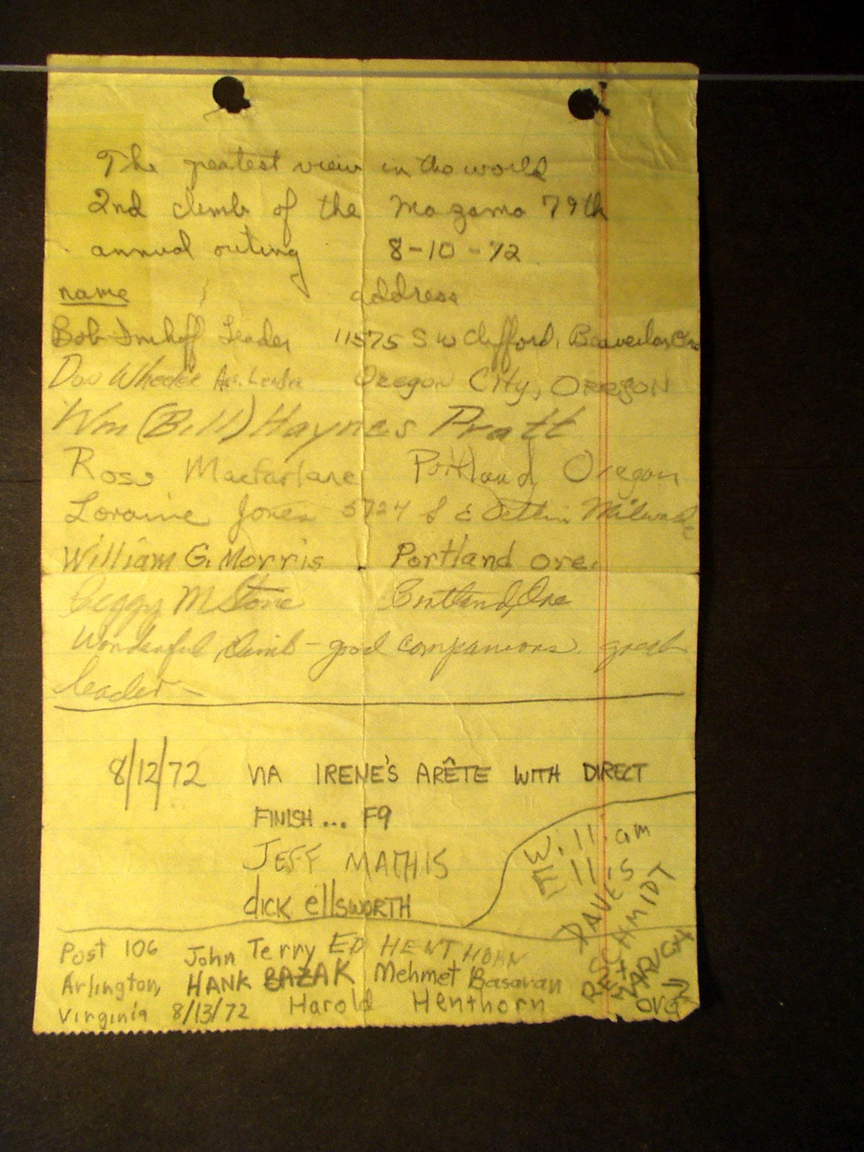 The greatest view in the world
2nd climb of the Mazama 79th
annual outing 8-10-72
name address
Bob Imhoff Leader 11575 SW Clifford, Beaverton Ore
Don Wheeler Ass. Leader Oregon City, OREGON
Wm (Bill) Haynes Pratt
Ross Macfarlane Portland, Oregon
Loraine Jones 5724 S E Milwaukie
William G. Morris Portland Ore.
Peggy M Stone Portland, Ore
Wonderful climb - good companions. great
leader -
8/12/72 VIA IRENE'S ARÊTE WITH DIRECT
FINISH ... F9
JEFF MATHIS
dick ellsworth
William
Ellis
DAVE
SCHMIDT
Post 106 John Terry ED HENTHORN
Arlington, HANK BAZAK Mehmet Basaran
Virginia 8/13/72 Harold Henthorn
OVER →